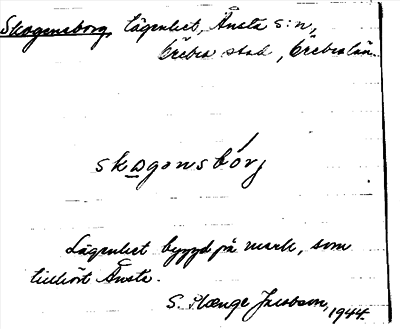 Skogensborg, Lägenhet, Ånsta s:n,
Örebro stad, Örebro län.
skogensbórj
Lägenhet byggd på mark, som
tillhört Ånsta.
S. Plænge Jacobson, 1944.